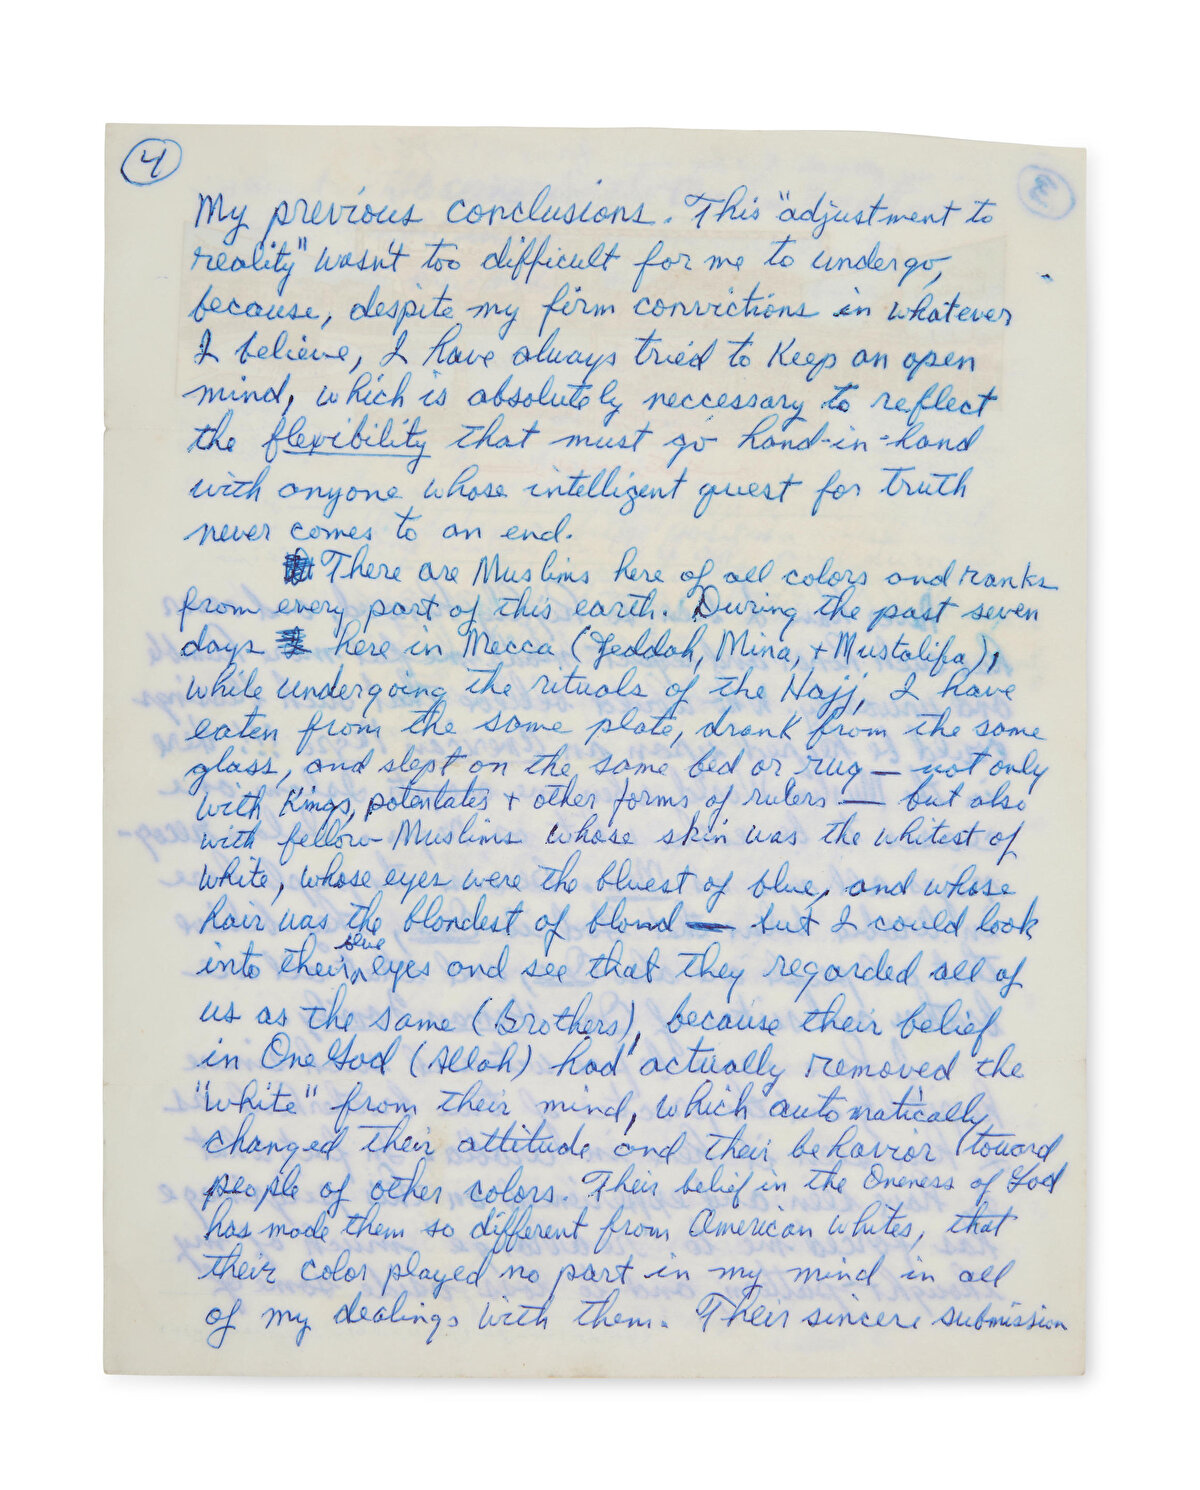 4
3
My previous conclusions. This "adjustment to
reality" wasn't too difficult for me to undergo,
because, despite my firm convictions in whatever
I believe, I have always tried to keep an open
mind, which is absolutely neccessary to reflect
the flexibility that must go hand-in-hand
with anyone whose intelligent quest for truth
never comes to an end.
There are Muslims here of all colors and ranks
from every part of this earth. During the past seven
days here in Mecca (Jeddah, Mina, + Mustalifa),
while undergoing the rituals of the Hajj, I have
eaten from the same plate, drank from the same
glass, and slept on the same bed or rug — not only
with Kings, potentates + other forms of rulers — but also
with fellow-Muslims whose skin was the whitest of
white, whose eyes were the bluest of blue, and whose
hair was the blondest of blond — but I could look
into their blue eyes and see that they regarded all of
us as the same (Brothers), because their belief
in One God (Allah) had actually removed the
"white" from their mind, which automatically
changed their attitude and their behavior toward
people of other colors. Their belief in the Oneness of God
has made them so different from American whites, that
their color played no part in my mind in all
of my dealings with them. Their sincere submission